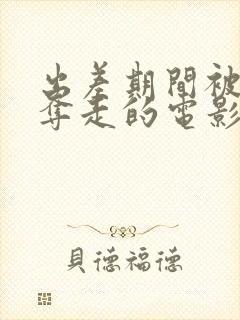 出差期間被
奪走的電影
貝德福德